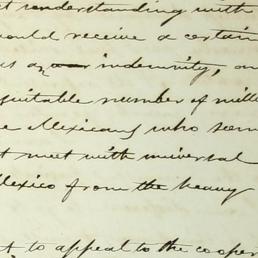 understanding with
would receive a certain
as an indemnity, an
equitable number of mill
e Mexicans who seem
t meet with universal
Mexico from the heavy
t to appeal to the cooper